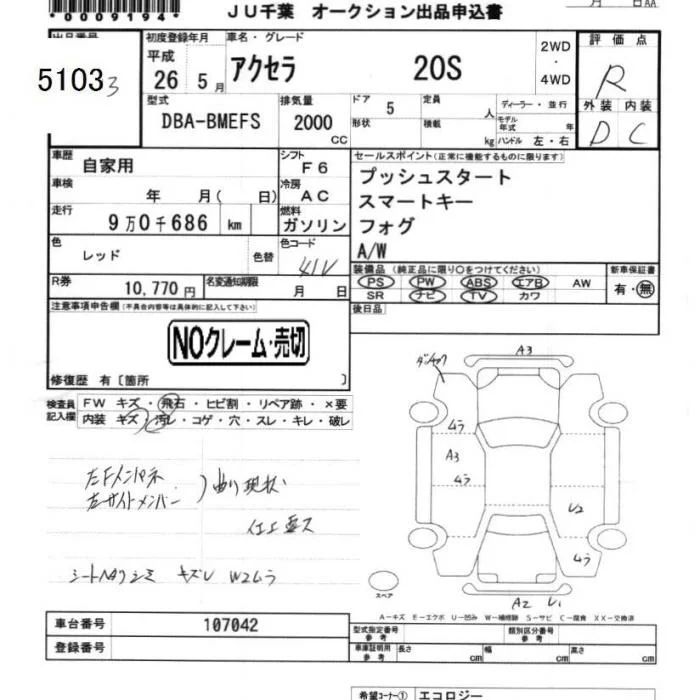 *0009194*
JU千葉 オークション出品申込書
月 日AA
出品番号
51033
初度登録年月
平成
26 5月
車名・グレード
アクセラ 20S
2WD
・
4WD
評価点
R
外装 内装
D C
型式
DBA-BMEFS
排気量
2000
CC
ドア
5
形状
定員
人
積載
kg
ディーラー・並行
モデル
年式 年
ハンドル 左・右
車歴
自家用
シフト
F6
車検
年 月( 日)
冷房
AC
走行
9万0千686 km
燃料
ガソリン
色
レッド
色替
色コード
41V
R券
10,770円
名変通知期限
月 日
セールスポイント(正常に機能するものに限ります)
プッシュスタート
スマートキー
フォグ
A/W
装備品(純正品に限り○をつけてください)
PS PW ABS エアB AW
SR ナビ TV カワ
新車保証書
有・無
後日品
注意事項申告欄(不具合内容等は具体的に記入して下さい)
NOクレーム・売切
修復歴 有〔箇所 〕
検査員
記入欄
FW キズ・飛石・ヒビ割・リペア跡・×要
内装 キズ・汚レ・コゲ・穴・スレ・キレ・破レ
左Fインパネ
左サイドメンバー
曲り現状
シートハクシミ キズU W2ムラ
A3
ムラ
A3
ムラ
U2
ムラ
A2 U1
スペア
A－キズ E－エクボ U－凹み W－補修跡 S－サビ C－腐食 XX－交換済
車台番号
107042
登録番号
型式指定番号
参考
類別区分番号
参考
車庫証明用
参考
長さ cm
幅 cm
高さ cm
希望コーナー① エコロジー